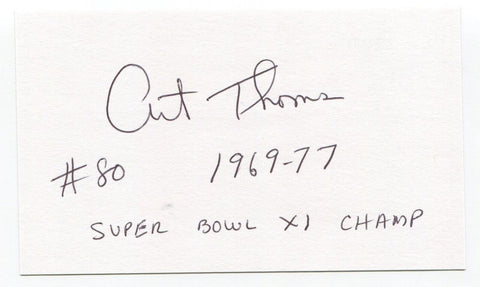 Art Thoms
#80 1969-77
SUPER BOWL XI CHAMP